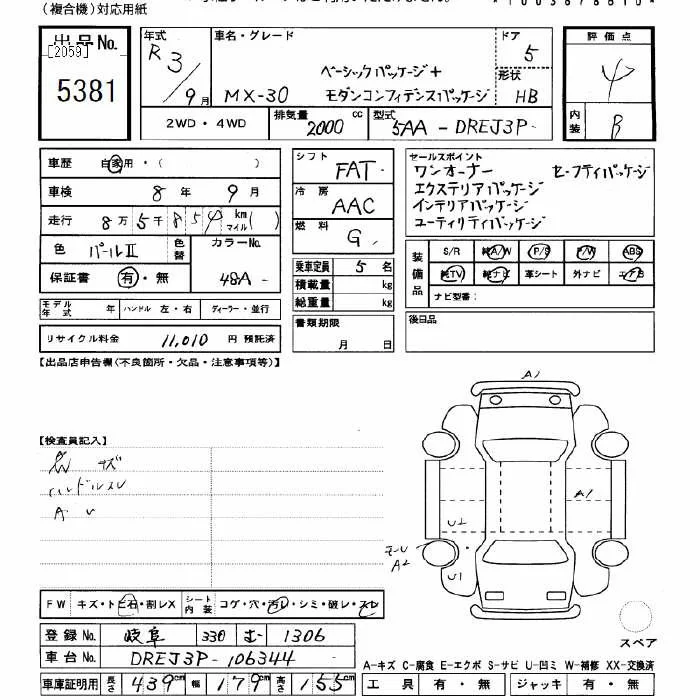 (複合機)対応用紙
出品No.
[2059]
5381
年式 R3/9月
車名・グレード
MX-30
ベーシックパッケージ+
モダンコンフィデンスパッケージ
ドア 5
形状 HB
2WD・4WD
排気量 2000 cc
型式 5AA-DREJ3P-
評価点
4
内装 B
車歴 自家用・( )
車検 8年 9月
走行 8万5千854 km マイル( )
色 パールⅡ 色替
カラーNo. 48A-
保証書 有・無
モデル年式 年 ハンドル 左・右 ディーラー・並行
リサイクル料金 11,010 円 預託済
シフト FAT-
冷房 AAC
燃料 G
乗車定員 5名
積載量 kg
総重量 kg
書類期限
月 日
セールスポイント
ワンオーナー セーフティパッケージ
エクステリアパッケージ
インテリアパッケージ
ユーティリティパッケージ
装備品
S/R 純A/W P/S P/W ABS
純TV 純ナビ 革シート 外ナビ エアB
ナビ型番:
後日品
【出品店申告欄(不良箇所・欠品・注意事項等)】
【検査員記入】
ハンドルスレ
A1
A1
U1
A2
U1
FW キズ・トビ石・割レX シート内装 コゲ・穴・汚レ・シミ・破レ・スレ
登録No. 岐阜 330 む 1306
車台No. DREJ3P-106344
車庫証明用 長さ 439cm 幅 179cm 高さ 155cm
スペア
A-キズ C-腐食 E-エクボ S-サビ U-凹ミ W-補修 XX-交換済
工具 有・無 ジャッキ 有・無